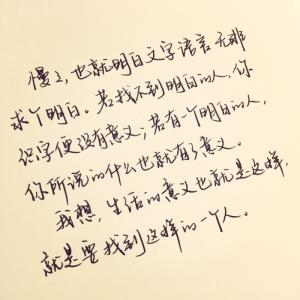 慢慢，也就明白文字语言无非
求个明白。若找不到明白的人，你
识字便没有意义；若有一个明白的人，
你所说的什么也就有了意义。
我想，生活的意义也就是这样，
就是要找到这样的一个人。